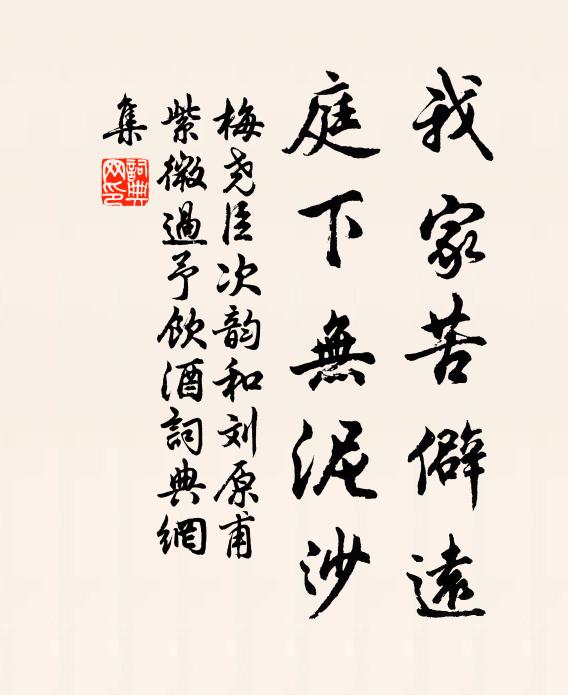 我家苦僻遠
庭下無泥沙
梅堯臣次韵和刘原甫
紫微過予飲酒詞典網
集
詞典網印